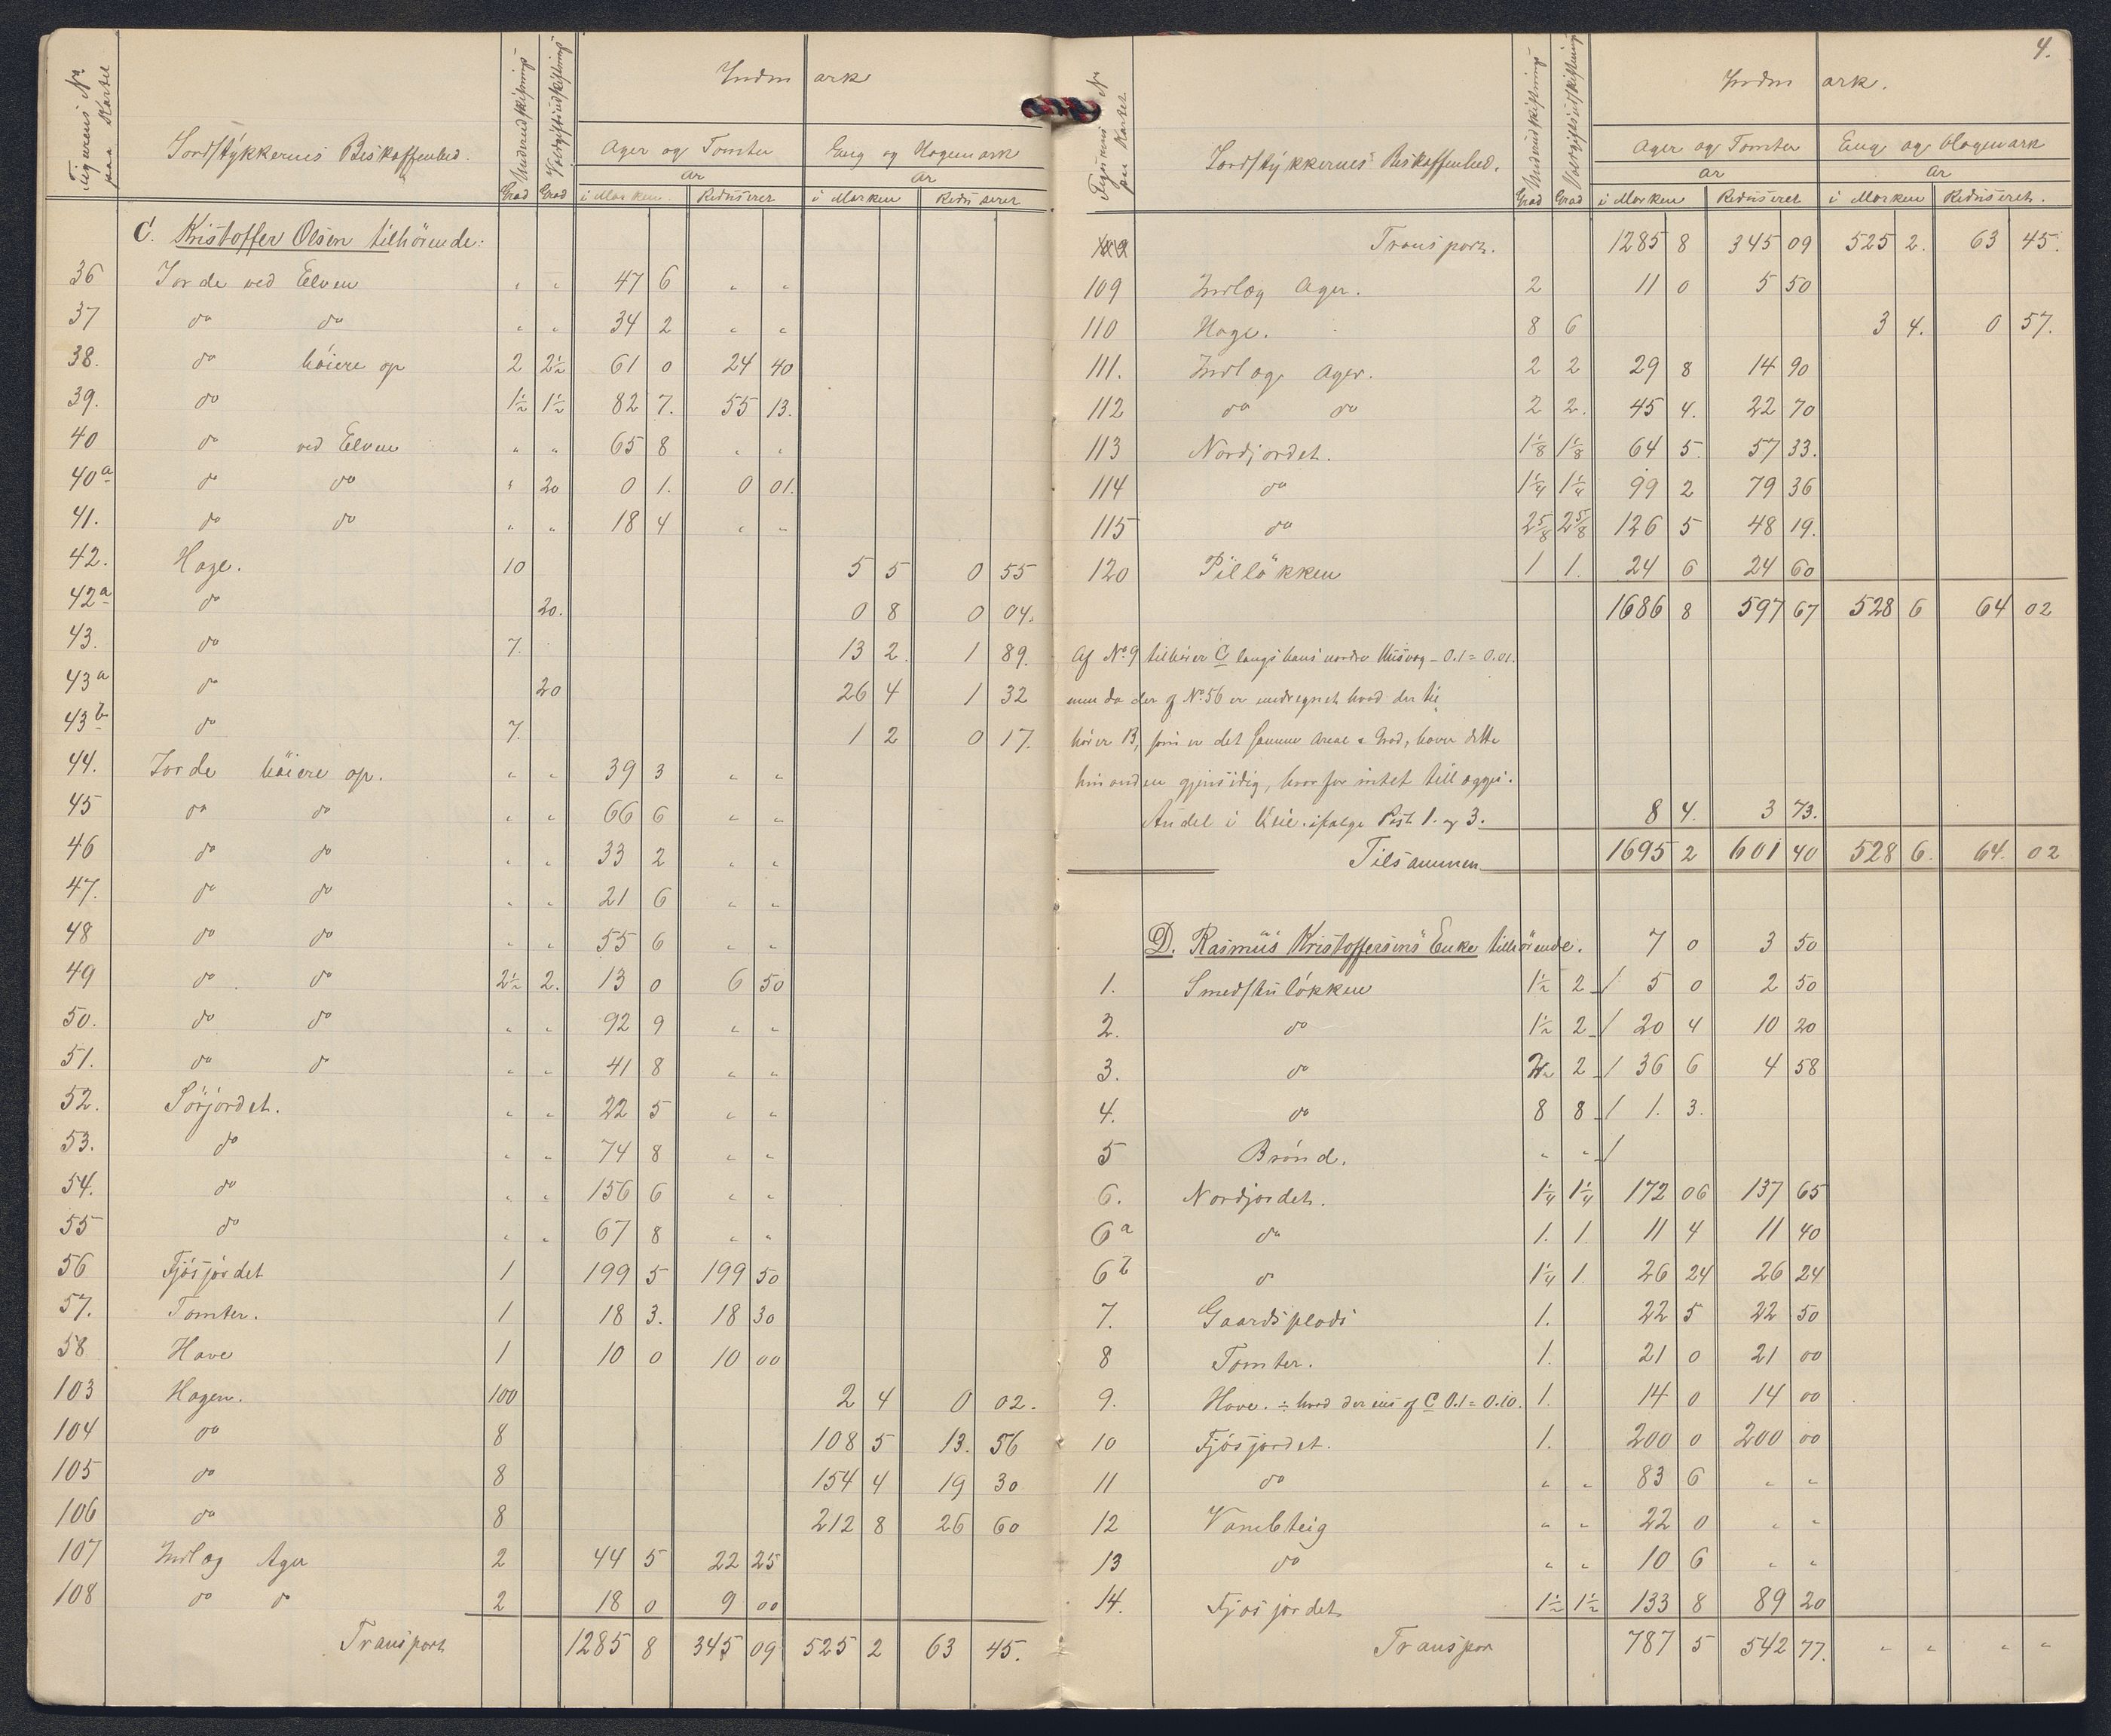 Figurens No. paa Kartet
Jordstykkernes Beskaffenhed.
Underudskiftning Grad
Værgiftsudskiftning Grad
Indmark
Ager og Tomter Eng og Hagemark
Ar Ar
i Marken. Reduseret i Marken Reduseret
C. Kristoffer Olsen tilhörende:
36 Jorde ved Elven " " 47 6 " "
37 do do " " 34 2 " "
38. do höiere op 2 2½ 61 0 24 40
39. do 1½ 1½ 82 7. 55 13.
40 do ved Elven " " 65 8 " "
40a do do " 20 0 1. 0 01.
41. do do " " 18 4 " "
42. Hage. 10 5 5 0 55
42a do 20. 0 8 0 04.
43. do 7. 13 2. 1 89.
43a do 20 26 4 1 32
43b do 7. 1 2 0 17.
44. Jorde höiere op. " " 39 3 " "
45 do do " " 66 6 " "
46 do do " " 33 2 " "
47. do do " " 21 6 " "
48 do do " " 55 6 " "
49 do do 2½ 2. 13 0 6 50
50. do do " " 92 9 " "
51. do do " " 41 8 " "
52. Sörjordet. " " 22 5 " "
53. do " " 74 8 " "
54. do " " 156 6 " "
55 do " " 67 8 " "
56 Fjösjordet 1 199 5 199 50
57. Tomter. 1 18 3. 18 30
58 Have 1 10 0 10 00
103 Hagen. 100 2 4 0 02.
104 do 8 108 5 13. 56
105 do 8 154 4 19 30
106 do 8 212 8 26 60
107 Indlæg Ager 2 44 5 22 25
108 do do 2 18 0 9 00
Transport 1285 8 345 09 525 2 63 45.
4.
Figurens No paa Kartet.
Jordstykkernes Beskaffenhed.
Underudskiftning Grad
Værgiftsudskiftning Grad
Indmark.
Ager og Tomter Eng og Hagemark
Ar Ar
i Marken Reduseret i Marken Reduseret.
Transport. 1285 8 345 09 525 2. 63 45.
109 Indlæg Ager. 2 11 0 5 50
110 Hage. 8 6 3 4. 0 57.
111. Indlæg Ager. 2 2 29 8 14 90
112 do do 2 2. 45 4. 22 70
113 Nordjordet. 1⅛ 1⅛ 64 5. 57 33.
114 do 1¼ 1¼ 99 2 79 36
115 do 2⅝ 2⅝ 126 5 48 19.
120 Pillökken 1 1. 24 6 24 60
1686 8 597 67 528 6 64 02
Af No. 9 tilhörer C langs hans nordre Husvæg - 0.1 = 0.01.
men da der af No. 56 er medregnet hvad der til
hörer B, som er det samme Areal & Grad, hæver dette
hinanden gjensidig, hvorfor intet tillægges.
Andel i Veie. ifølge Post 1. og 3. 8 4. 3 73.
Tilsammen 1695 2 601 40 528 6. 64. 02
D. Rasmus Kristoffersens Enke tilhörende. 7 0 3 50
1. Smedstulökken 1½ 2 / 5 0 2 50
2. do 1½ 2 / 20 4 10 20
3. do 2 2 / 36 6 4 58
4. do 8 8 / 1. 3.
5 Brönd. " " /
6. Nordjordet. 1¼ 1¼ 172 06 137 65
6a do 1. 1. 11 4 11 40
6b do 1¼ 1. 26 24 26 24
7. Gaardsplads 1. 22 5 22 50
8 Tomter. 1. 21 0 21 00
9. Have. ÷ hvad der eies af C 0.1 = 0.10. 1. 14 0 14 00
10 Fjösjordet. 1. 200 0 200 00
11 do " " 83 6 " "
12 Vambteig " " 22 0 " "
13 do " " 10 6 " "
14. Fjösjordet 1½ 1½ 133 8 89 20
Transport 787 5 542 77. " " " "